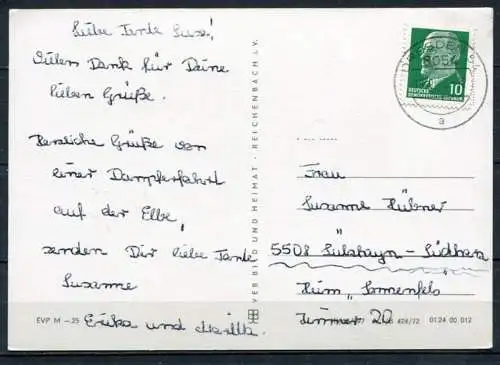 Liebe Tante Suse!
Vielen Dank für Deine
lieben Grüße.
Herzliche Grüße von
einer Dampferfahrt
auf der Elbe,
senden Dir liebe Tante
Susanne
Erika und
EVP M -.25
VEB BILD UND HEIMAT · REICHENBACH I. V.
DRESDEN
8054
a
10
DEUTSCHE
DEMOKRATISCHE REPUBLIK
Frau
Susanne Hübner
5508 Sülzhayn - Südharz
Heim "Sonnenfels
Zimmer 20
428/72 01 24 00 012